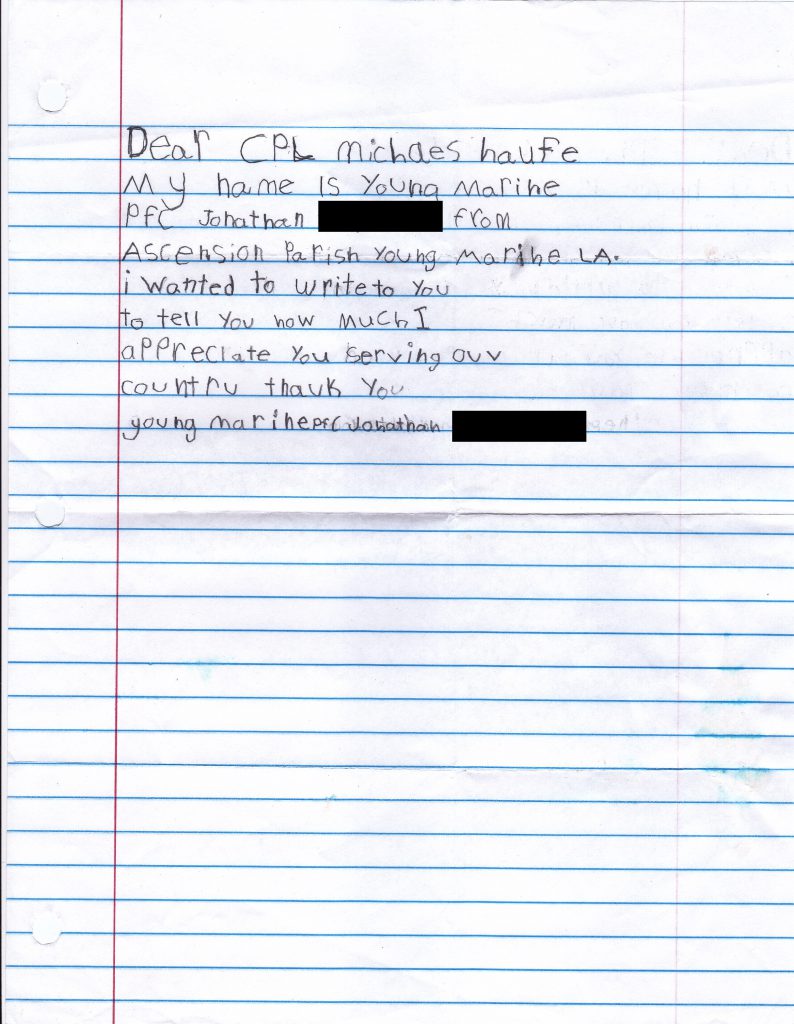 Dear CPL michaes haufe
My name is Young Marine
Pfc Jonathan from
Ascension Parish Young Marine LA.
i wanted to write to you
to tell you how much I
appreciate you serving ouv
countru thauk you
young marine Pfc Jonathan